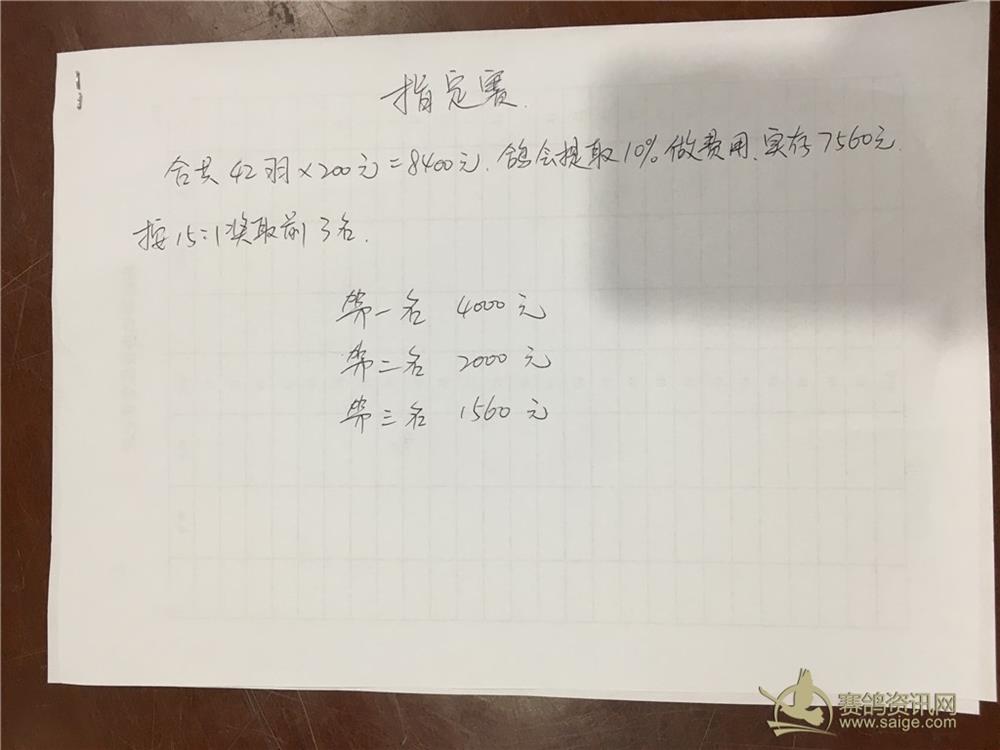 指定赛.
合共42羽×200元=8400元.鸽会提取10%做费用.实存7560元.
按15:1奖取前3名.
第一名 4000元
第二名 2000元
第三名 1560元
赛鸽资讯网
www.saige.com